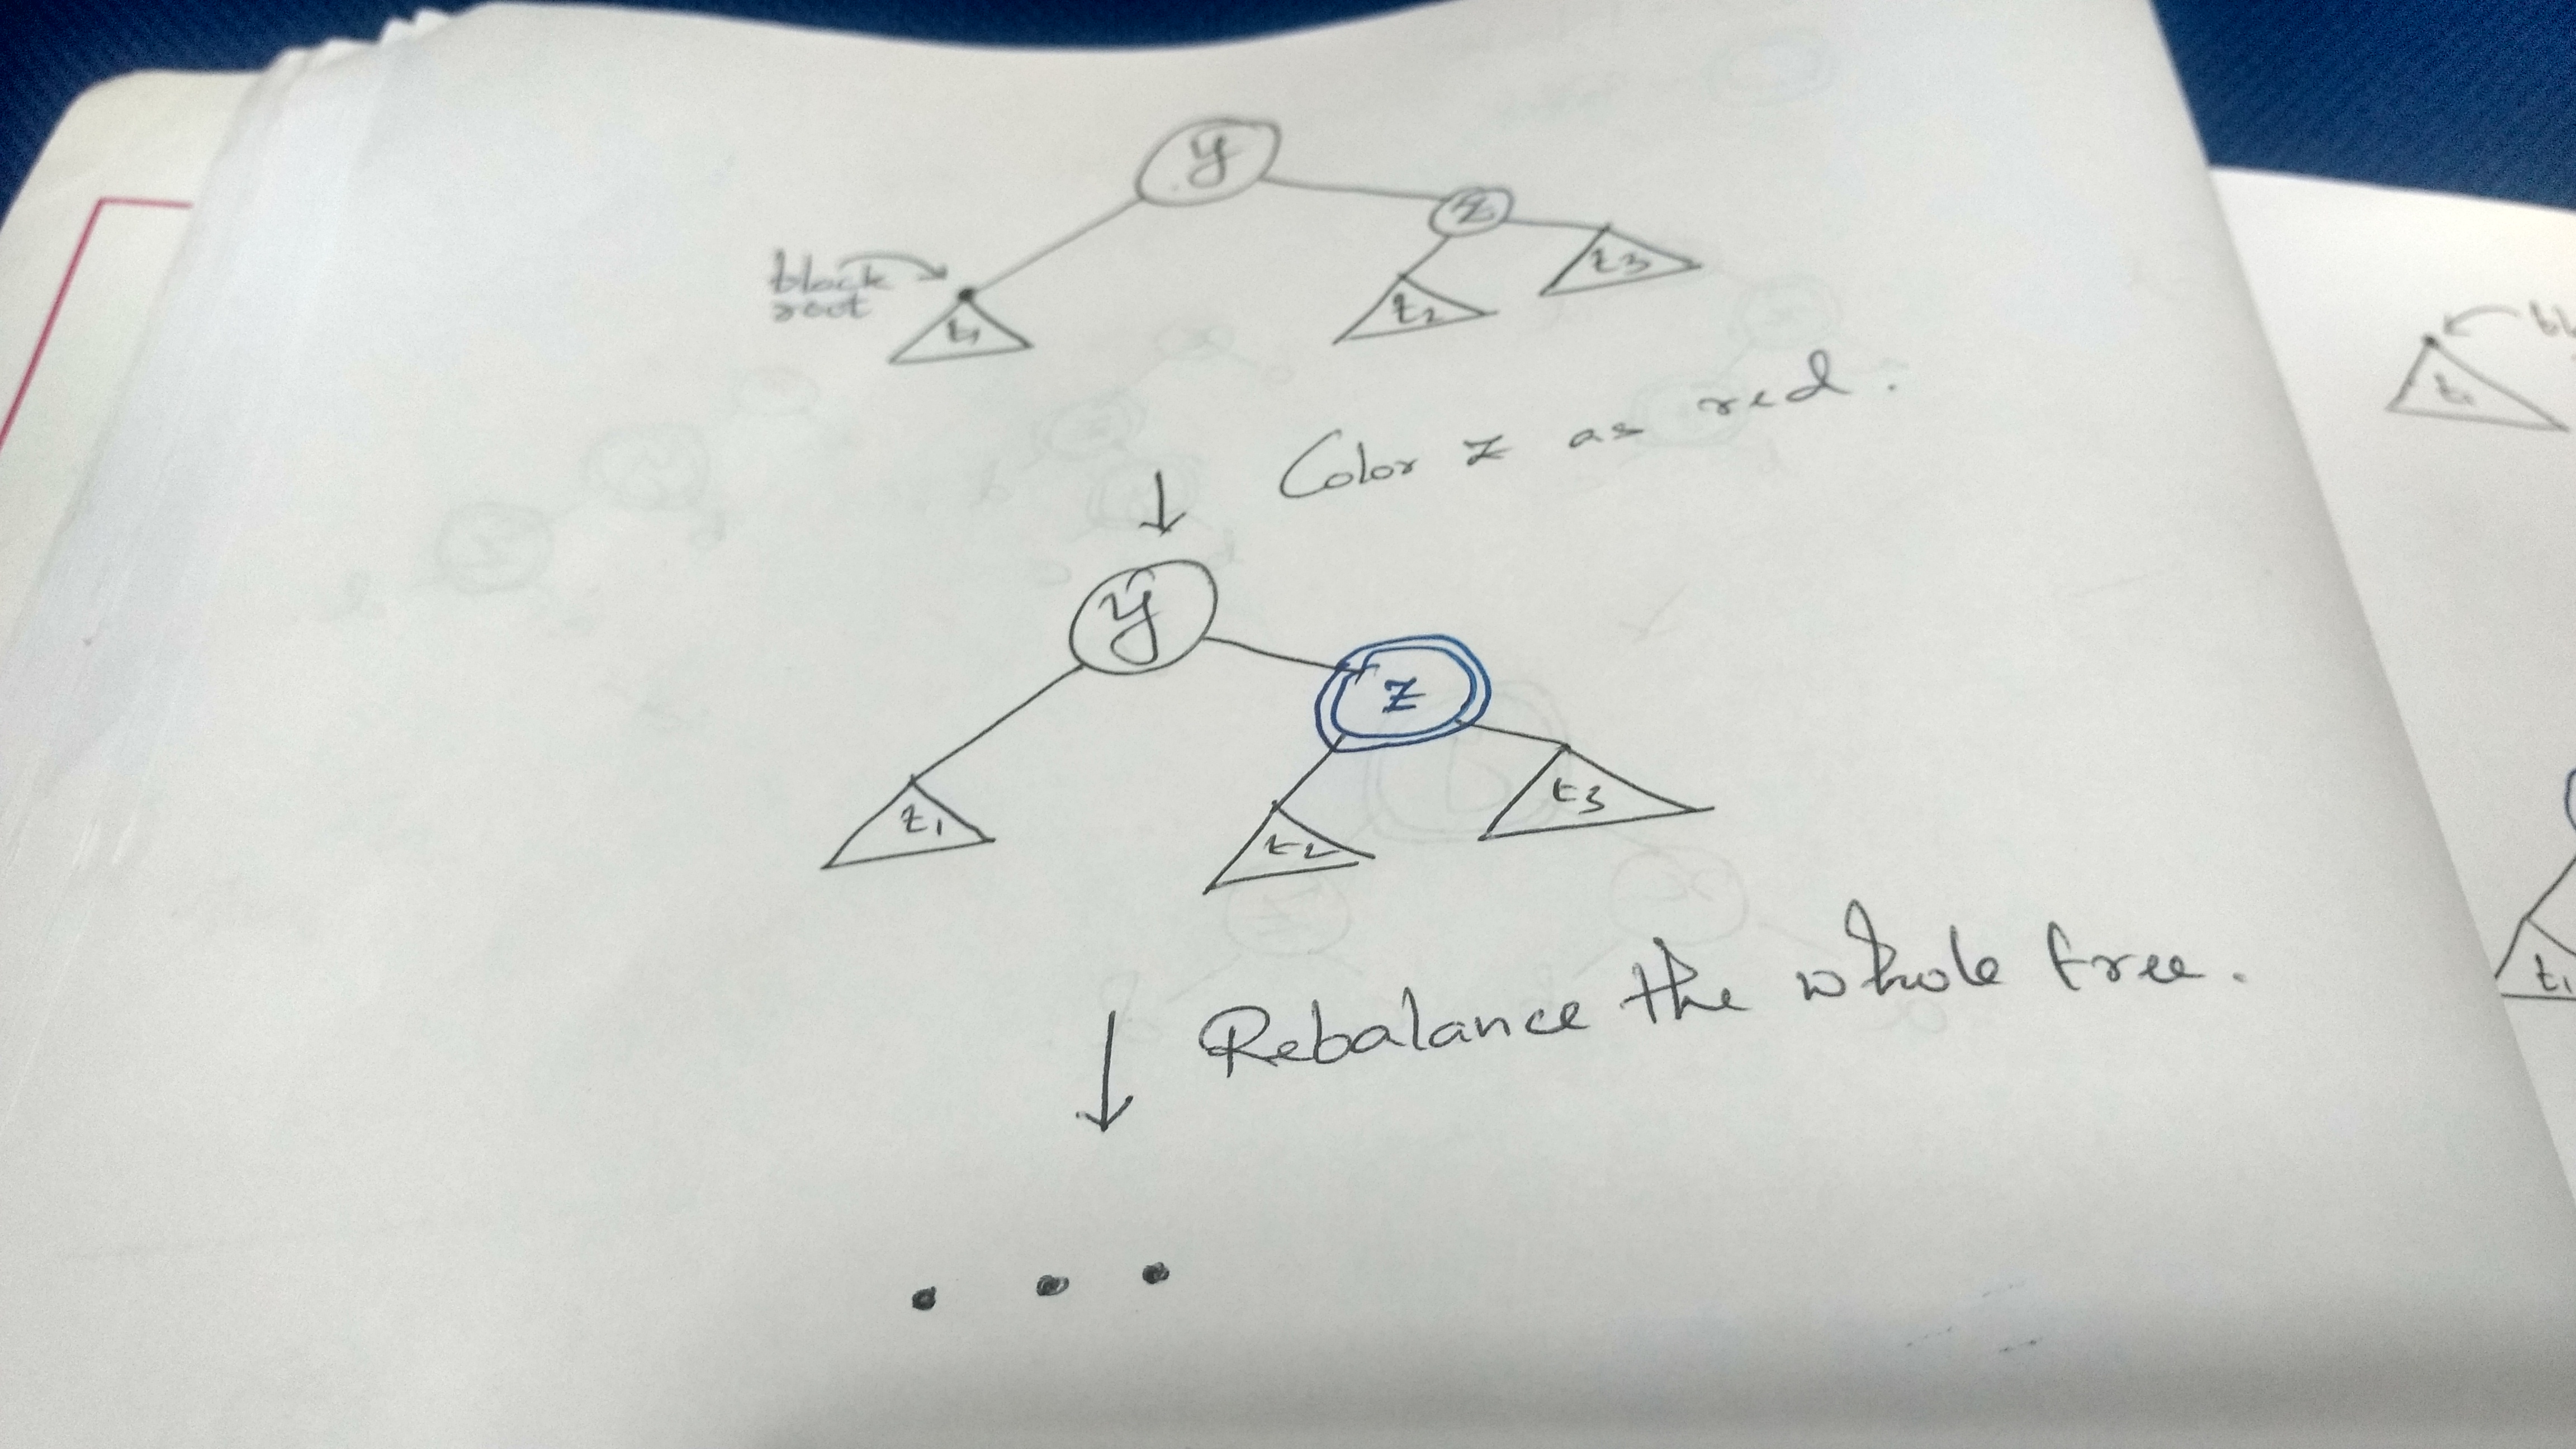 y
z
black
root
t1
t2
t3
Color z as red.
y
z
t1
t2
t3
Rebalance the whole tree.
. . .
t1
t1